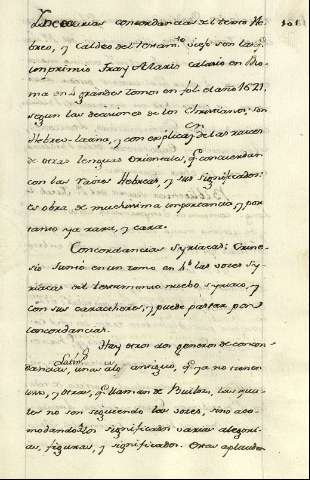 301
concordancias del texto He-
breo, y Caldeo del testam.to viejo son las q.e
imprimio Fray Mario Calasio en Ro-
ma en 4 grandes tomos en fol. el año 1621.
segun las decisiones de los Christianos; son
Hebreo-latina, y con explicaon de las raices
de otras lenguas Orientales, q.e concuerdan
con las raices Hebreas, y sus significados:
es obra de muchissima importancia, y por
tanto ya rara, y cara.
Concordancias Syriacas: Trine-
sio Junio en un tomo en 4.o las voces Sy-
riacas del testamento nuebo syriaco, y
con sus carachteres, y puede passar por
concordancias.
Hay otros dos generos de concor-
Latin.s
dancias, unas a lo antiguo, q.e ya no tienen
uso, y otras, q.e llaman de Bultos, las qua-
les no son siguiendo las voces, sino aco-
modando a los significados varias alegori-
as, figuras, y significados. Otras aplicados